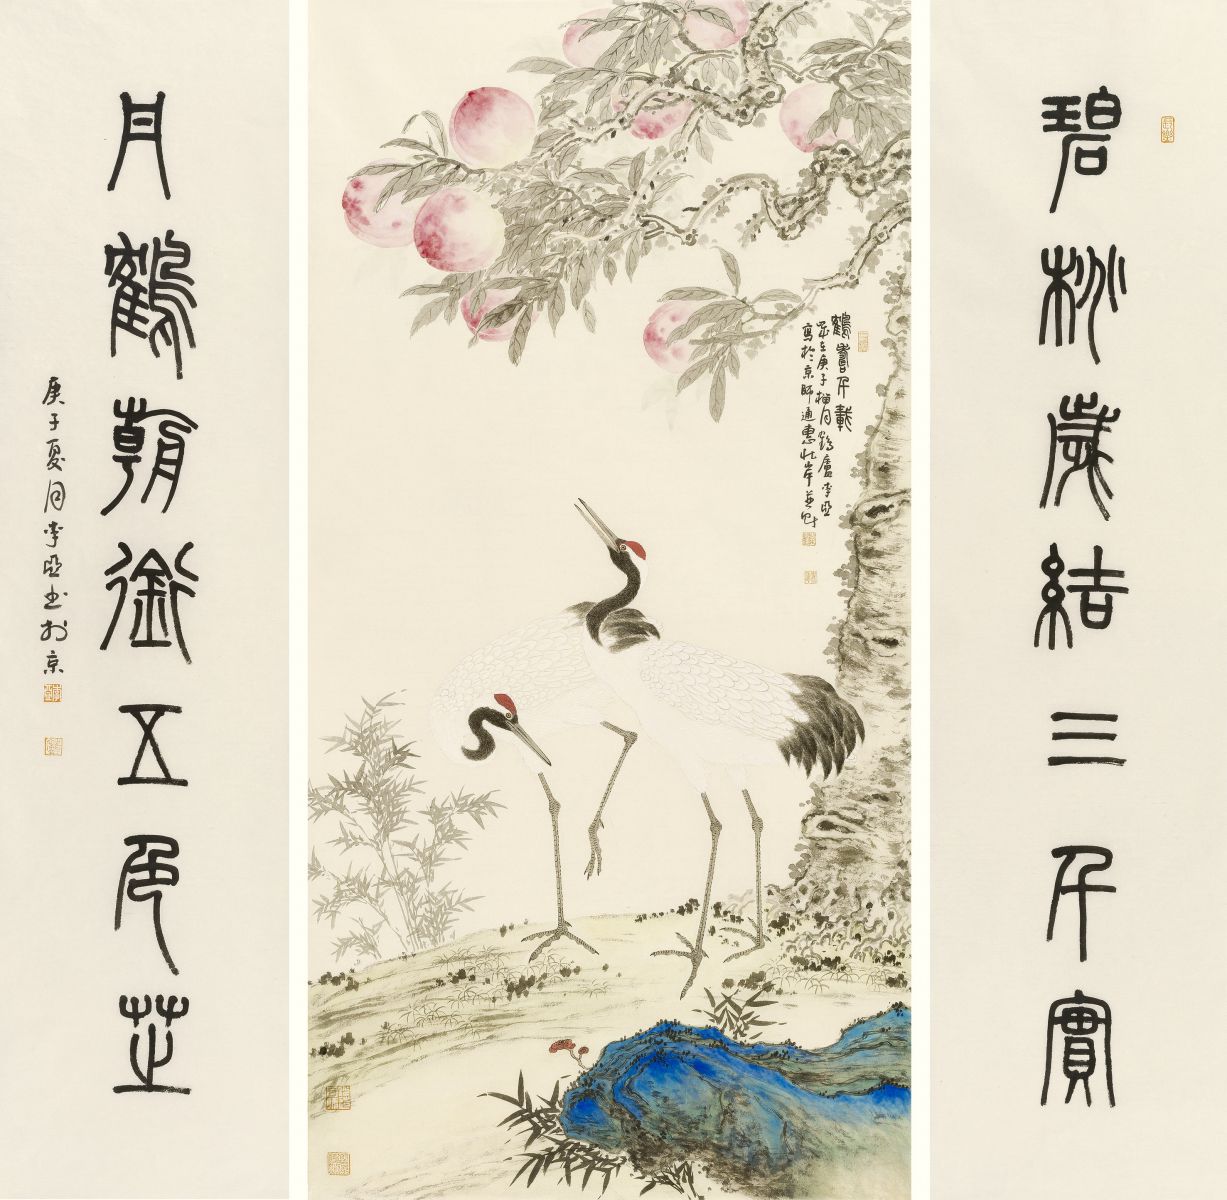 碧桃歲結三千實
鶴壽千載
歲在庚子榴月鶴廬李亞
寫於京師通惠北岸並記
丹鶴朝銜五色芝
庚子夏月李亞書於京